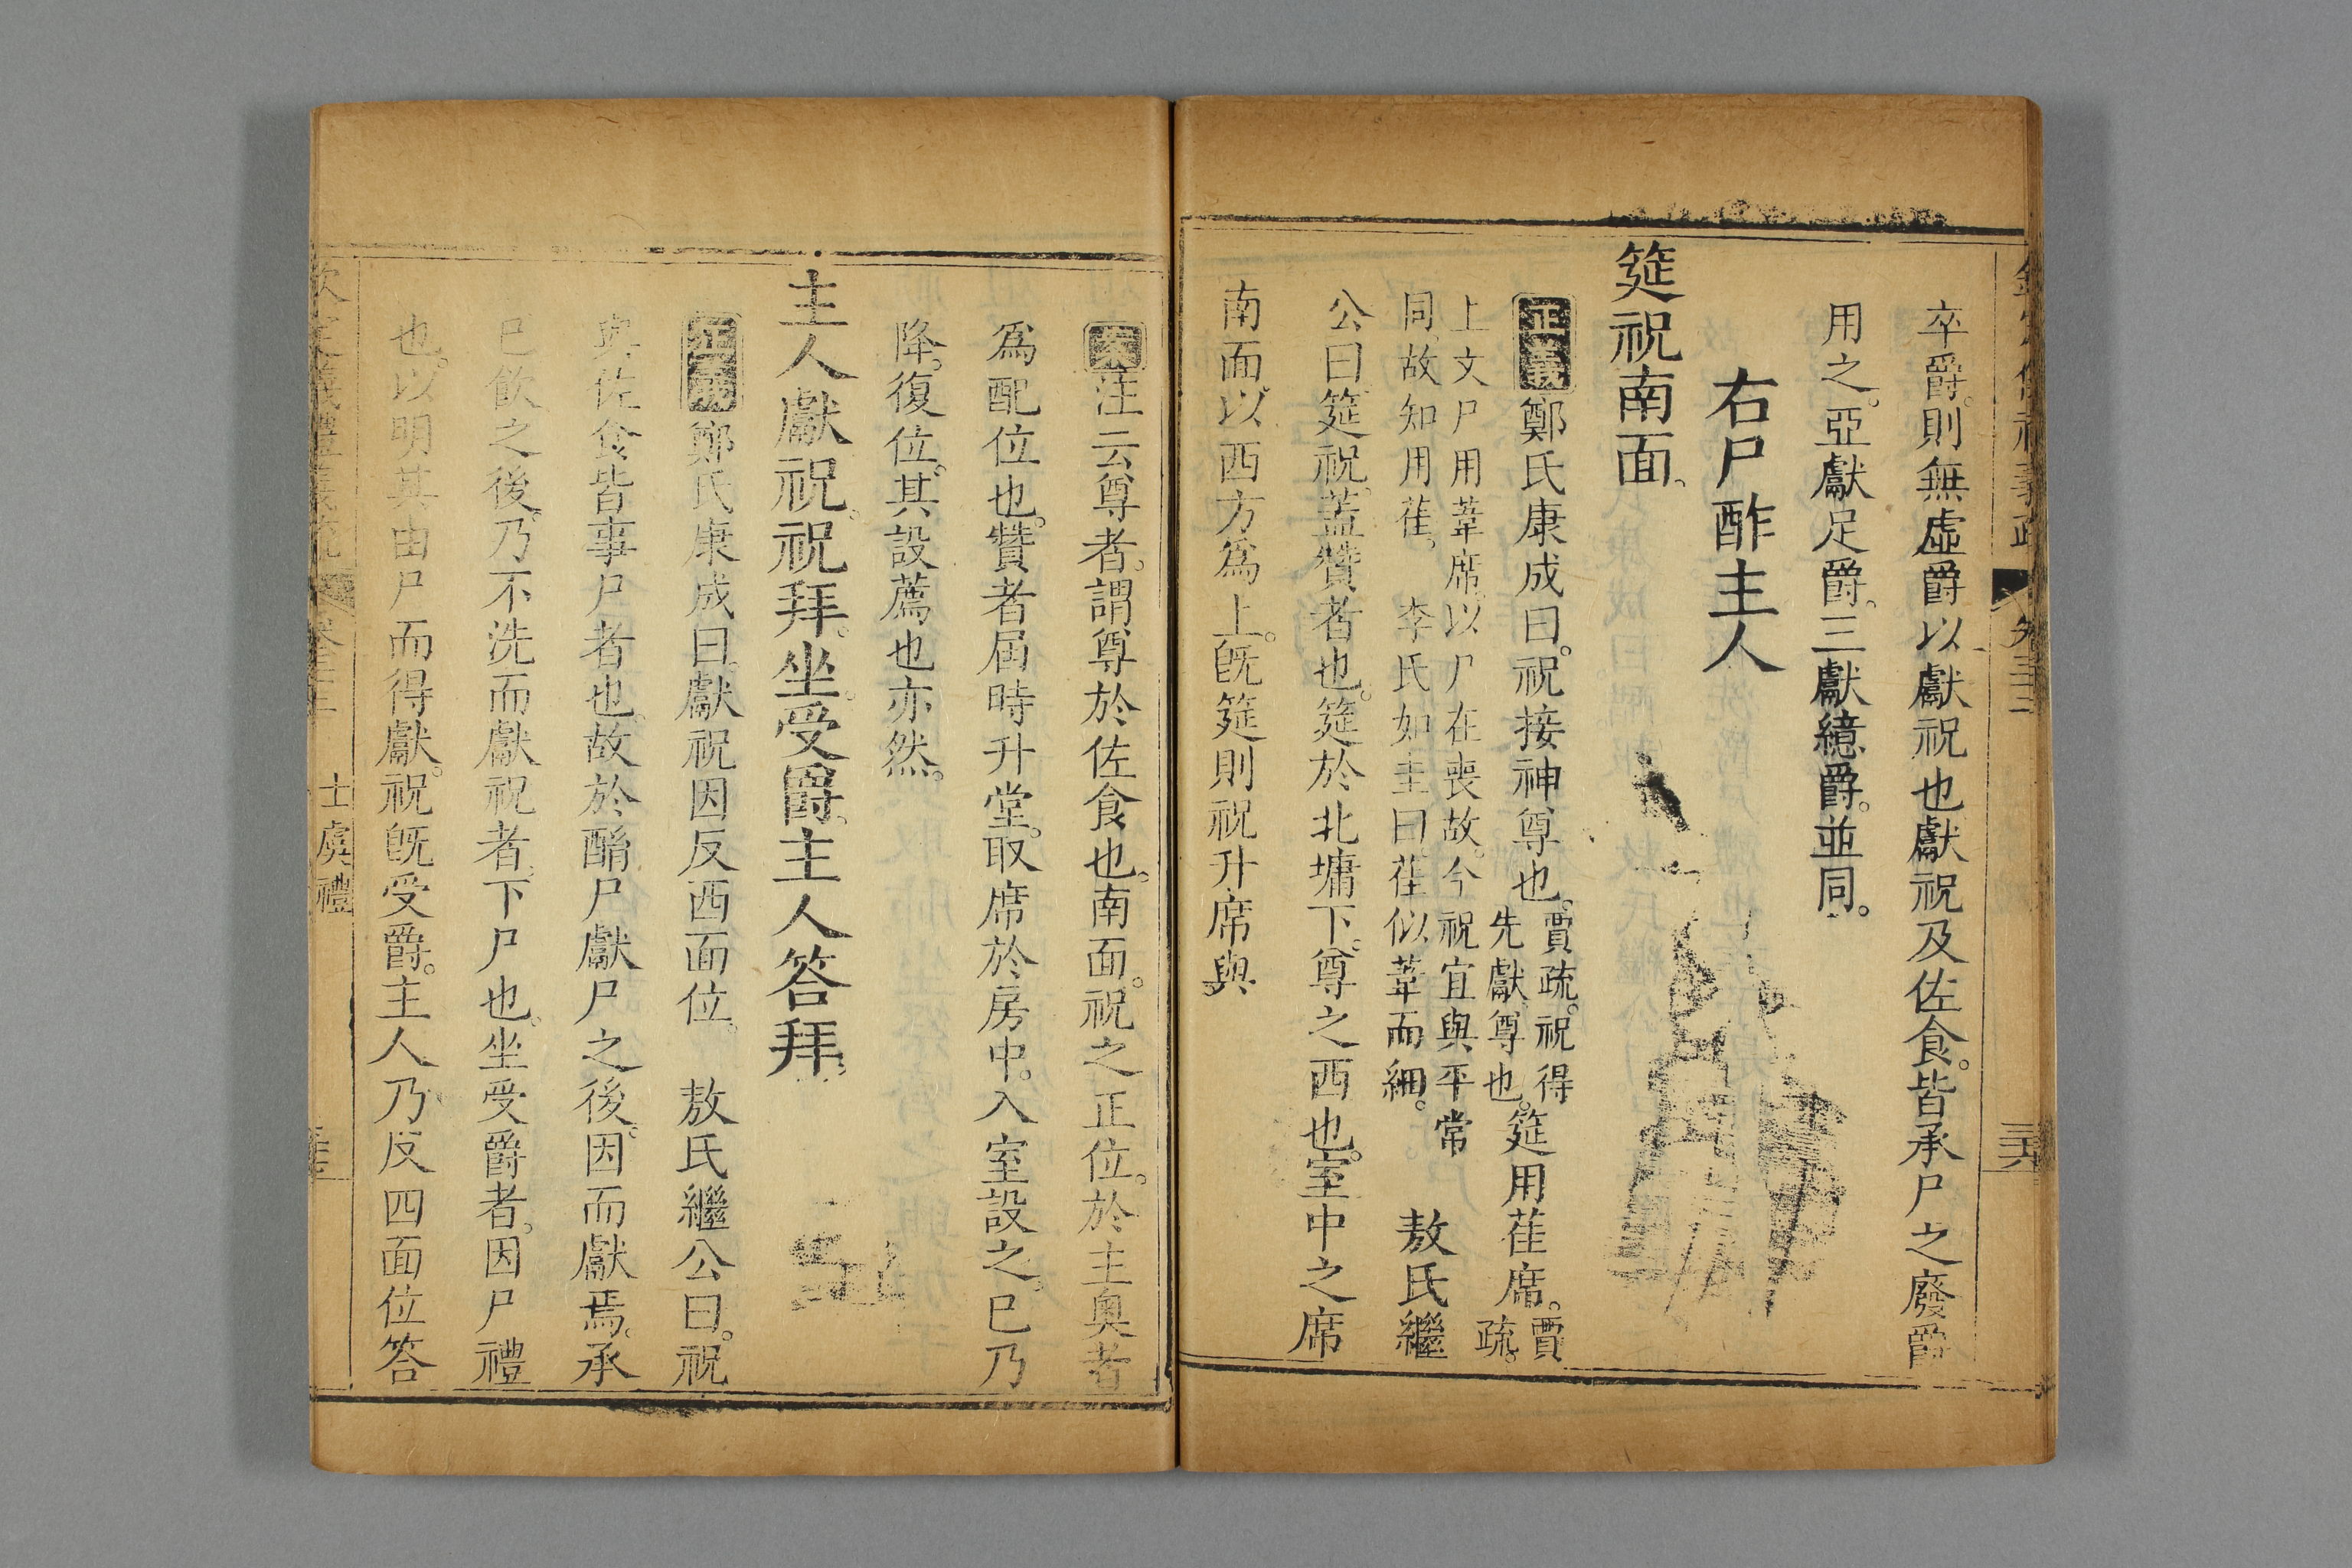 卒爵。則無虛爵以獻祝也獻祝及佐食。皆承尸之廢爵
用之。亞獻足爵。三獻繶爵。並同。
右尸酢主人
筵祝南面。
正義鄭氏康成曰。祝接神尊也。賈疏。祝得先獻。尊也。筵用萑席。賈疏。
上文尸用葦席。以尸在喪故。今祝宜與平常
同。故知用萑。 李氏如圭曰。萑似葦而細。 敖氏繼
公曰筵祝。蓋贊者也。筵於北墉下。尊之西也。室中之席
南面以西方爲上。旣筵則祝升席與
案注云尊者。謂尊於佐食也。南面。祝之正位。於主奧者
爲配位也。贊者届時升堂。取席於房中。入室設之。巳乃
降。復位。其設薦也亦然。
主人獻祝。祝拜。坐受爵。主人答拜。
正義鄭氏康成曰。獻祝因反西面位。 敖氏繼公曰。祝
與佐食皆事尸者也。故於酳尸獻尸之後。因而獻焉。承
巳飮之後。乃不洗而獻祝者。下尸也。坐受爵者。因尸禮
也。以明其由尸而得獻。祝旣受爵。主人乃反四面位答
士虞禮